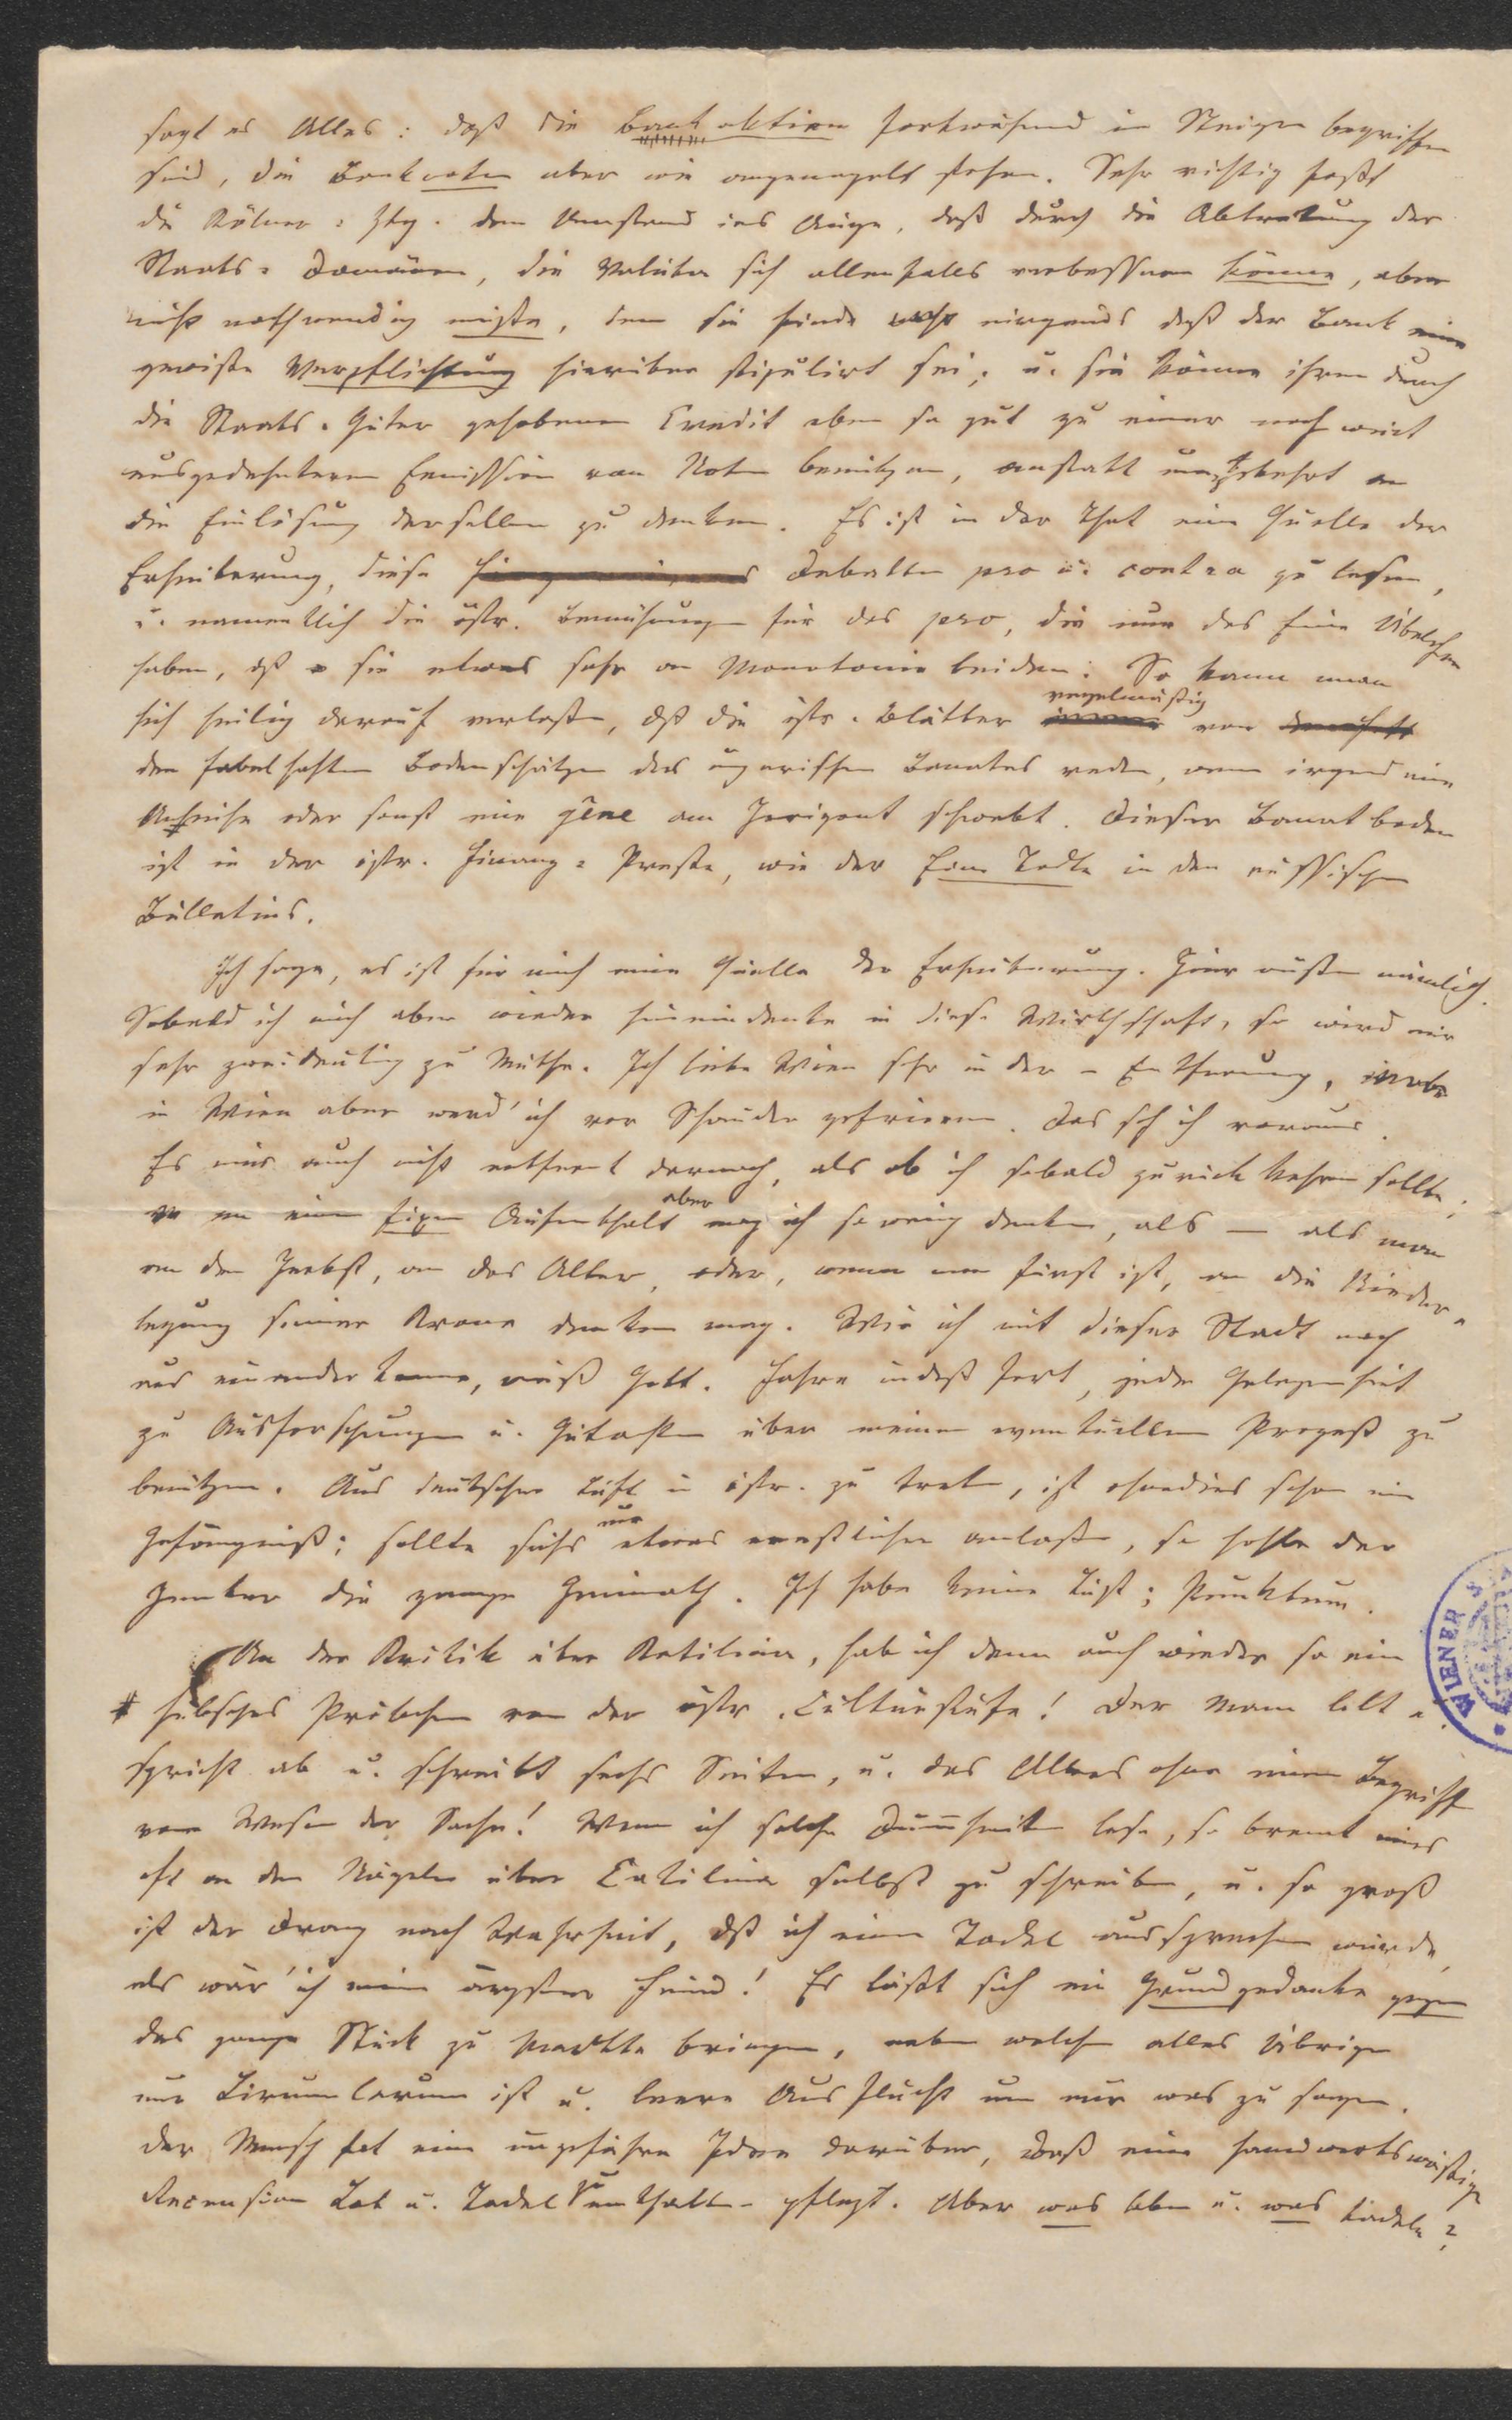 sagt es Alles: daß die Bankaktien fortwährend im Steigen begriffen
sind, die Banknoten aber wie angenagelt stehen. Sehr richtig faßt
die Kölner=Ztg. den Umstand ins Auge, daß durch die Abtretung der
Staats=Domänen, die Valuta sich allenfalls verbessern könne, aber
nicht nothwendig müßte, denn sie finde nirgends daß der Bank eine
gewisse Verpflichtung hierüber stipulirt sei; u. sie könne ihren durch
die Staats=Güter gehobenen Credit eben so gut zu einer noch weit
ausgedehnteren Emission von Noten benützen, anstatt umgekehrt an
die Einlösung derselben zu denken. Es ist in der That eine Quelle der
Erheiterung, diese Debatten pro u. contra zu lesen,
u. namentlich die östr. Bemühungen für das pro, die nur das Eine Übelchen
haben, dß sie etwas sehr an Monotonie leiden. So kann man
regelmäßig
sich heilig darauf verlassen, dß die östr. Blätter von
den fabelhaften Bodenschätzen des ungarischen Banates reden, wenn irgend eine
Anleihe oder sonst eine gêne am Horizont schwebt. Dieser Banatboden
ist in der östr. Finanz=Presse, wie der Eine Todte in den russischen
Bülletins.
Ich sage, es ist für mich eine Quelle der Erheiterung. Hier außen nämlich.
Sobald ich mich aber wieder hineindenke in diese Wirthschaft, so wird mir
sehr zweideutig zu Muthe. Ich liebe Wien sehr in der – Entfernung,
in Wien aber werd' ich vor Schauder gefrieren. Das seh ich voraus.
Es auch nicht entfernt darnach, als ob ich sobald zurück kehren sollte;
aber
an einen fixen Aufenthalt mag ich so wenig denken, als — als man
an den Herbst, an das Alter, oder, wenn man Fürst ist, an die Nieder=
legung seiner Krone denken mag. Wie ich mit dieser Stadt noch
aus einander komme, weiß Gott. Fahre indeß fort, jede Gelegenheit
zu Ausforschungen u. Gutachten über meinen eventuellen Prozeß zu
benützen. Aus deutscher Luft in östr. zu treten, ist ohnedies schon ein
nur
Gefängniß; sollte sichs etwas ernstlicher anlassen, so hohle der
Henker die ganze Heimath. Ich habe keine Lust; Punktum.
An der Kritik über Katilina, hab ich denn auch wieder so ein
hübsches Pröbchen von der östr. Culturstufe! Der Mann lobt u.
spricht ab u. schreibt sechs Seiten, u. das Alles ohne einen Begriff
vom Wesen der Sache! Wenn ich solche Dummheiten lese, so brennt mirs
oft an den Nägeln über Catilina selbst zu schreiben, u. so groß
ist der Drang nach Wahrheit, dß ich einen Tadel aussprechen würde,
als wär' ich mein ärgster Feind! Es läßt sich ein Grundgedanke gegen
das ganze Stück zu Markte bringen, neben welchem alles Übrige
nur Lirumlarum ist u. leere Ausflucht um nur was zu sagen.
Der Mensch hat eine ungefähre Idee darüber, daß eine handwerksmäßige
Recension Lob u. Tadel zu enthalten pflegt. Aber was loben u. was tadeln?
WIENER